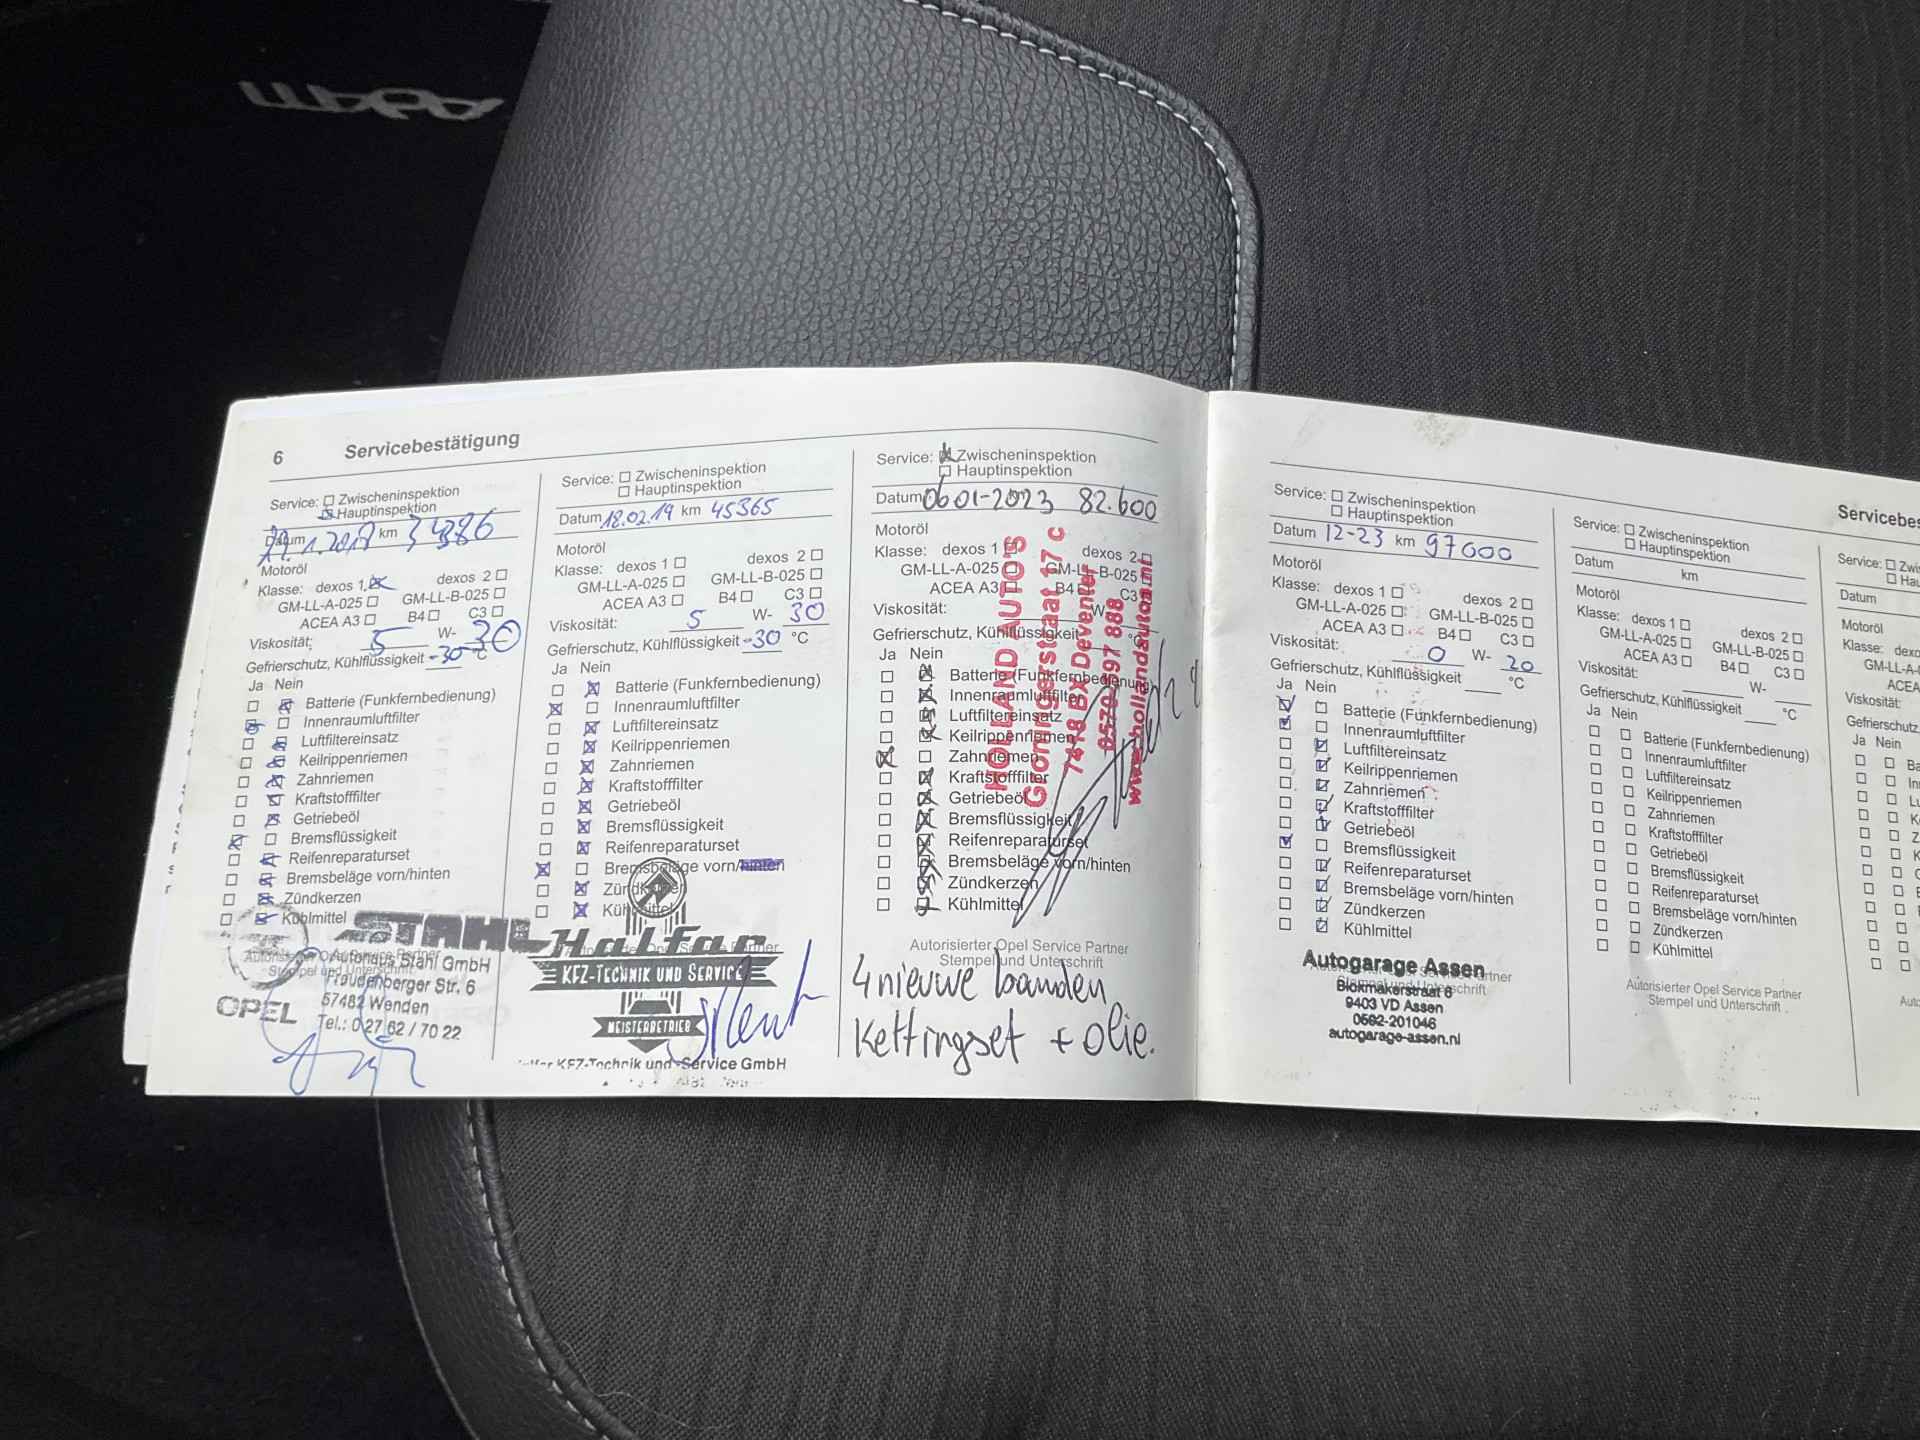 6 Servicebestätigung
Service: Zwischeninspektion
Hauptinspektion
Datum km 34386
Motoröl
Klasse: dexos 1 dexos 2
GM-LL-A-025 GM-LL-B-025
ACEA A3 B4 C3
Viskosität: 5 W- 30
Gefrierschutz, Kühlflüssigkeit -30 °C
Ja Nein
Batterie (Funkfernbedienung)
Innenraumluftfilter
Luftfiltereinsatz
Keilrippenriemen
Zahnriemen
Kraftstofffilter
Getriebeöl
Bremsflüssigkeit
Reifenreparaturset
Bremsbeläge vorn/hinten
Zündkerzen
Kühlmittel
STAHL
Autorisierter Opel Service Partner
Stempel und Unterschrift
Autohaus Stahl GmbH
57482 Wenden
OPEL
Tel.: 0 27 62 / 70 22
Service: Zwischeninspektion
Hauptinspektion
Datum 18.02.19 km 45365
Motoröl
Klasse: dexos 1 dexos 2
GM-LL-A-025 GM-LL-B-025
ACEA A3 B4 C3
Viskosität: 5 W- 30
Gefrierschutz, Kühlflüssigkeit -30 °C
Ja Nein
Batterie (Funkfernbedienung)
Innenraumluftfilter
Luftfiltereinsatz
Keilrippenriemen
Zahnriemen
Kraftstofffilter
Getriebeöl
Bremsflüssigkeit
Reifenreparaturset
Bremsbeläge vorn/hinten
Zündkerzen
Kühlmittel
Halfar
KFZ-TECHNIK UND SERVICE
MEISTERBETRIEB
KFZ-Technik und Service GmbH
Service: Zwischeninspektion
Hauptinspektion
Datum 06-01-2023 82.600
Motoröl
Klasse: dexos 1 dexos 2
GM-LL-A-025 GM-LL-B-025
ACEA A3 B4 C3
Viskosität: W-
Gefrierschutz, Kühlflüssigkeit °C
Ja Nein
Batterie (Funkfernbedienung)
Innenraumluftfilter
Luftfiltereinsatz
Keilrippenriemen
Zahnriemen
Kraftstofffilter
Getriebeöl
Bremsflüssigkeit
Reifenreparaturset
Bremsbeläge vorn/hinten
Zündkerzen
Kühlmittel
HOLLAND AUTO'S
17 c
7418 BX Deventer
www.hollandautos.nl
Autorisierter Opel Service Partner
Stempel und Unterschrift
4 nieuwe banden
Kettingset + olie.
Servicebes
Service: Zwischeninspektion
Hauptinspektion
Datum 12-23 km 97000
Motoröl
Klasse: dexos 1 dexos 2
GM-LL-A-025 GM-LL-B-025
ACEA A3 B4 C3
Viskosität: 0 W- 20
Gefrierschutz, Kühlflüssigkeit °C
Ja Nein
Batterie (Funkfernbedienung)
Innenraumluftfilter
Luftfiltereinsatz
Keilrippenriemen
Zahnriemen
Kraftstofffilter
Getriebeöl
Bremsflüssigkeit
Reifenreparaturset
Bremsbeläge vorn/hinten
Zündkerzen
Kühlmittel
Autogarage Assen
Blokmakerstraat 6
9403 VD Assen
0592-201046
autogarage-assen.nl
Service: Zwischeninspektion
Hauptinspektion
Datum km
Motoröl
Klasse: dexos 1 dexos 2
GM-LL-A-025 GM-LL-B-025
ACEA A3 B4 C3
Viskosität: W-
Gefrierschutz, Kühlflüssigkeit °C
Ja Nein
Batterie (Funkfernbedienung)
Innenraumluftfilter
Luftfiltereinsatz
Keilrippenriemen
Zahnriemen
Kraftstofffilter
Getriebeöl
Bremsflüssigkeit
Reifenreparaturset
Bremsbeläge vorn/hinten
Zündkerzen
Kühlmittel
Autorisierter Opel Service Partner
Stempel und Unterschrift
Service: Zwi
Datum
Motoröl
Klasse: dexo
GM-LL-A
ACE
Viskosität:
Gefrierschutz
Ja Nein